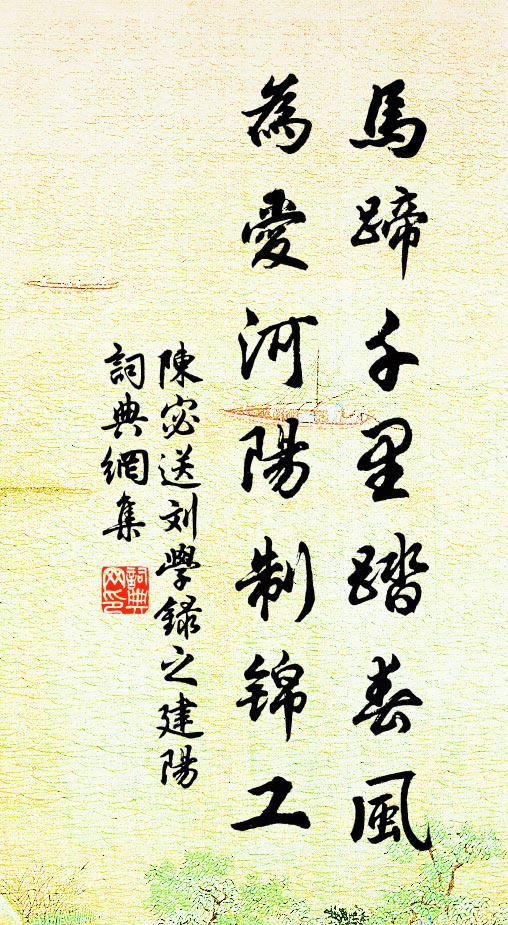 馬蹄千里踏春風
為愛河陽制錦工
陳宓送刘學録之建陽
詞典網集
詞典網印